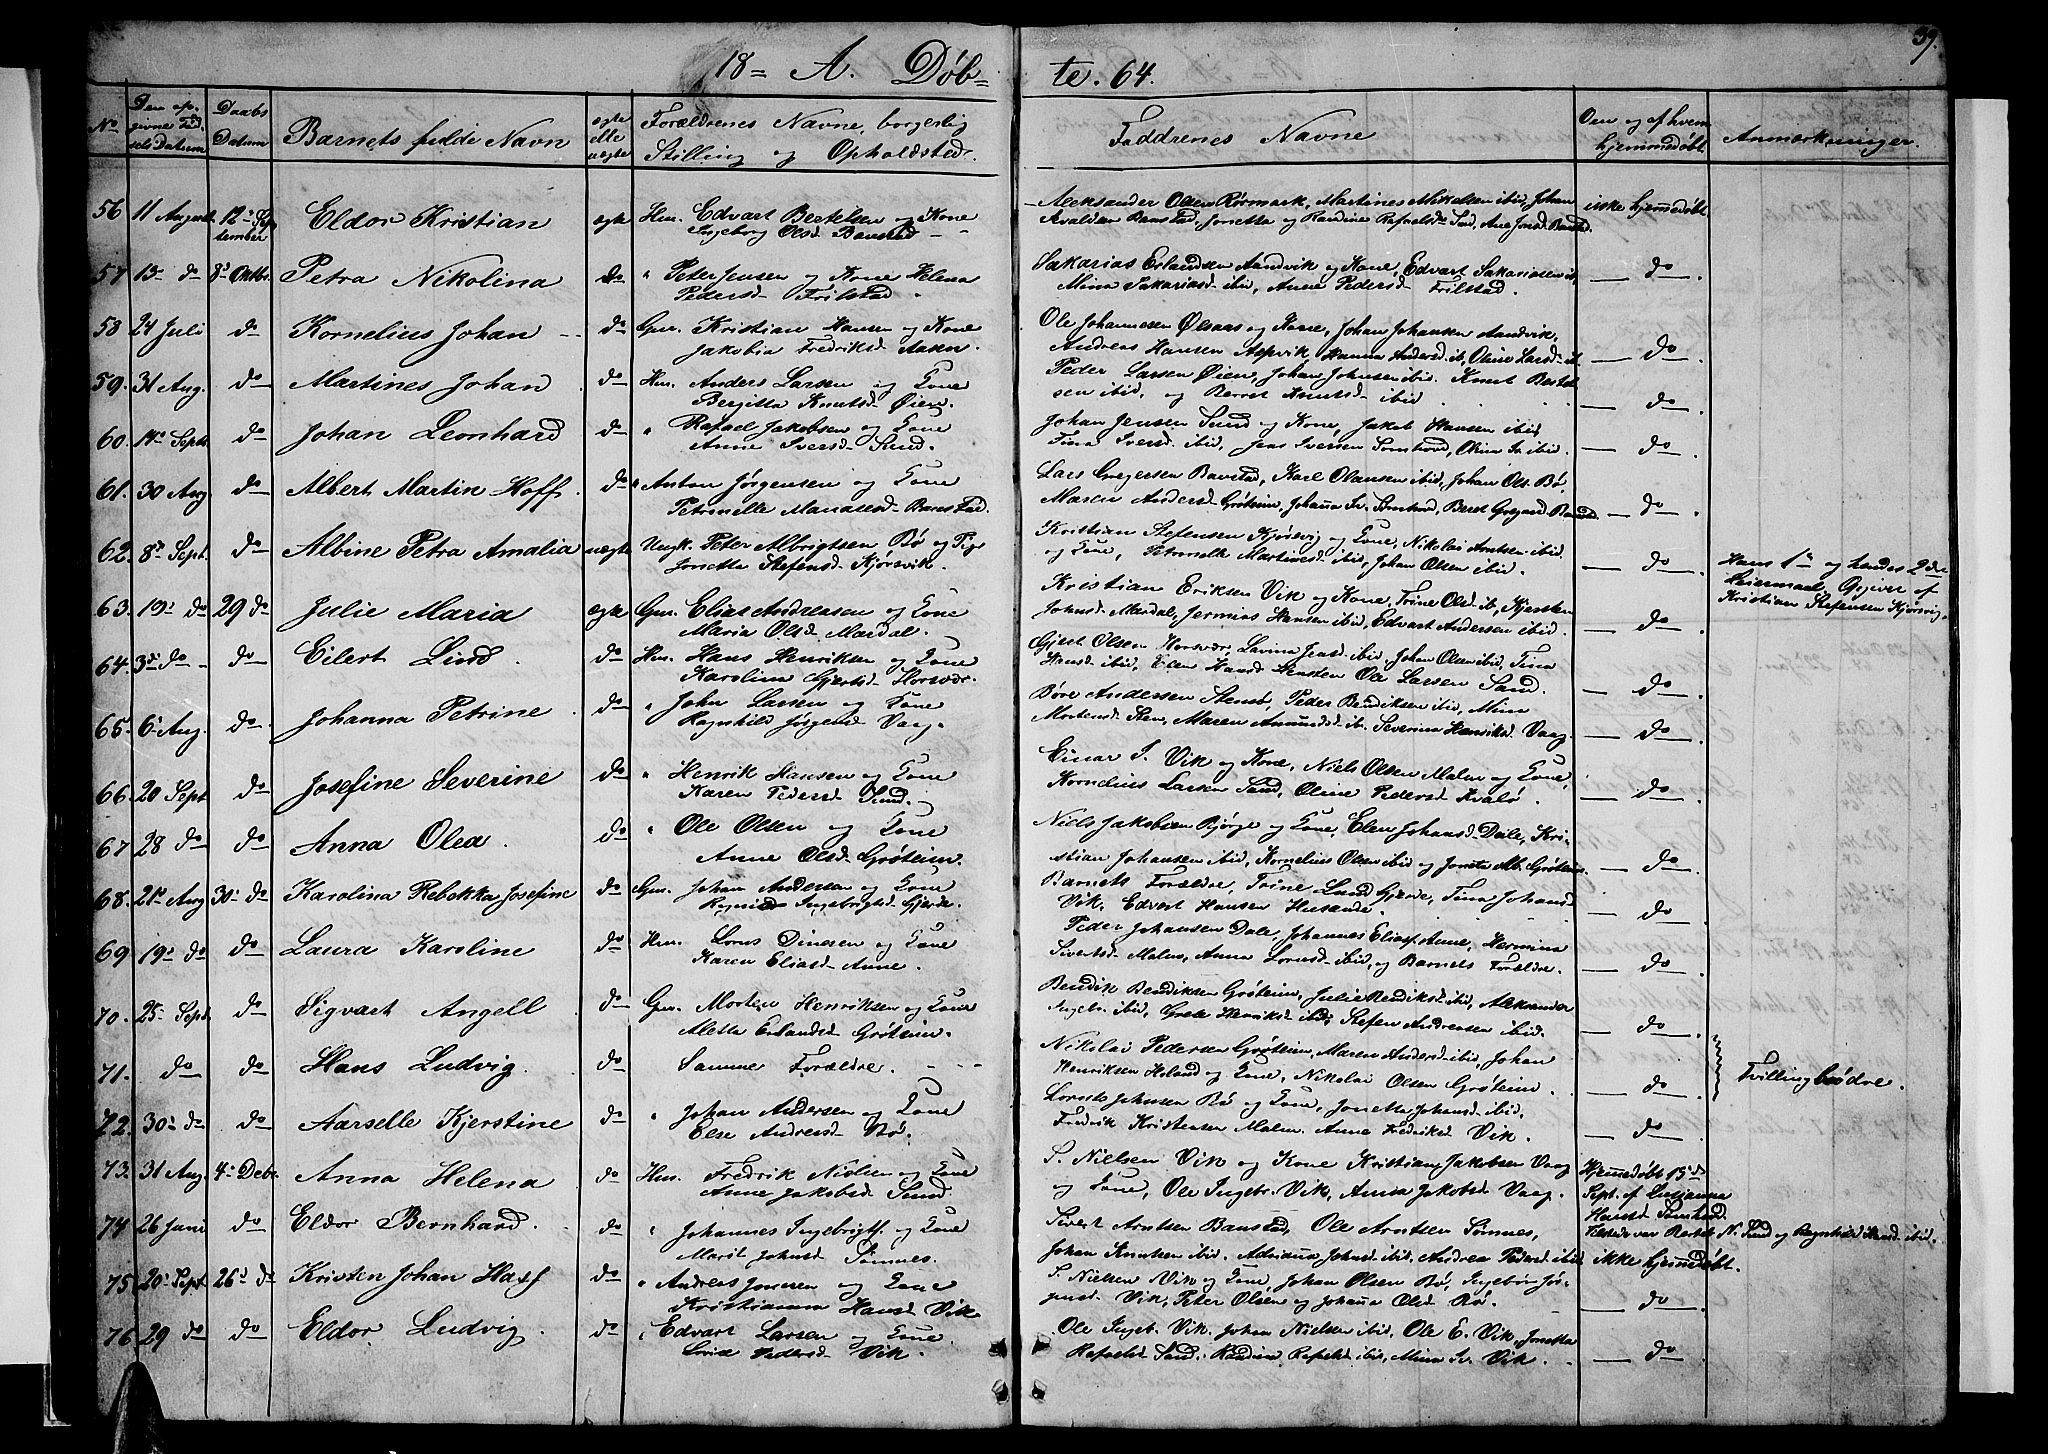 39.
18= A. Døb=
te. 64.
No
Den op-
givne Fød-
sels Datum
Daabs
Datum
Barnets fulde Navn
ægte
elle
uægte
Forældrenes Navne, borgerlig
Stilling og Opholdsted.
Faddrenes Navne
Om og af hvem
hjemmedøbt.
Anmærkninger.
56 11 August 12te Sep-
tember
Eldor Kristian
ægte
Hm. Edvart Bertelsen og Kone
Ingeborg Olsd. Bavstad
Aleksander Olsen Rørmark, Martines Mikelsen ibid, Johan
Bavstad, Jonetta og Randine Rafaelsd. Sund, Ane Jonsd. Bavstad.
ikke hjemmedøbt.
57 13 do 8de Oktbr.
Petra Nikolina
do
" Peter Jensen og Kone Helena
Pedersd. Frilstad.
Sakarias Erlandsen Aandvik og Kone, Edvart Sakariasen ib,
Mina Sakariasd. ibid, Anne Pedersd. Frilstad.
do
58 24 Juli do
Kornelius Johan
do
Gm. Kristian Hansen og Kone
Jakobia Fredriksd. Aasen.
Ole Johannesen Ølsaas og Kone, Johan Johansen Aandvik,
Andreas Hansen Aspvik, Hanna Andersd. ib, Oline Larsd. ib.
do
59. 31 Aug. do
Martines Johan
do
Hm. Anders Larsen og Kone
Bergitta Knutsd. Øien.
Peder Larsen Øien, Johan Johnsen ibid. Knut Bertel-
sen ibid, og Berret Knutsd. ibid.
do
60. 14de Septr. do
Johan Leonhard
do
" Rafael Jakobsen og Kone
Anne Iversd. Sund.
Johan Jensen Sund og Kone, Jakob Hansen ibid,
Tina Iversd. ibid, Jens Iversen Somhovd, Olina Iv. ibid.
do
61. 30 Aug do
Albert Martin Hoff
do
" Anton Jørgensen og Kone
Petronelle Manasesd. Bavstad.
Lars Gregersen Bavstad, Karl Olausen ibid, Johan Ols. Bø,
Maren Andersd. Grøteim, Johanna Iv. Somhovd, Beret Gregersd. Bavstad.
do
62. 8de Sept. do
Albine Petra Amalia
uægte
Ungk. Peter Albrigtsen Bø og Pige
Jonetta Stefensd. Kjørsvik.
Kristian Stefensen Kjørsvig og Kone, Nikolai Arntsen ibid.
og Kone, Petronelle Martinesd. ibid, Johan Olsen ibid.
do
Hans 1ste og hendes 2det
Leiermaal. Opgiver af
Kristian Stefensen Kjørsvig.
63. 19de do 29 do
Julie Maria
ægte
Gm. Elias Andreasen og Kone
Maria Olsd. Mardal.
Kristian Eriksen Vik og Kone, Trine Olsd. ib, Kjersten
Johnsd. Mardal, Jermias Hansen ibid, Edvart Andersen ibid.
do
64. 3de do do
Eilert Lind.
do
Hm. Hans Henriksen og Kone
Karolina Gjertsd. Horsvær.
Gjert Olsen Horsvær, Lavina Jensd. ibid, Johan Olsen ibid, Tina
Hansd. ibid, Elen Hansd. Ole Larsen Sund.
do
65. 6te Aug. do
Johanna Petrine
do
" John Larsen og Kone
Ragnhild Jørgensd. Vaag.
Børe Andersen Stensø, Peder Bendiksen ibid, Mina
Mortensd. Sten, Maren Amundsd. ib. Severina Henriksd. Vaag.
do
66. 20 Sept do
Josefine Severine
do
" Henrik Hansen og Kone
Karen Pedersd. Sund.
Einar S. Vik og Kone, Niels Olsen Malm og Kone,
Kornelius Larsen Sund, Oline Pedersd. Kvalø.
do
67 28 do do
Anna Olea.
do
" Ole Olsen og Kone
Anne Olsd. Grøteim.
Niels Jakobsen Bjørge og Kone, Elen Johansd. Dale, Kri-
stian Johansen ibid, Kornelius Olsen ibid og Jonetta Alb. Grøteim.
do
68. 21de Aug 30te do
Karolina Rebekka Josefine
do
Gm. Johan Andersen og Kone
Ragnild Ingebrigtsd. Gjerde.
Barnets Forældre, Trine Lund Gjerde, Tina Johansd.
Vik, Edvart Hansen Husande.
do
69 19de do do
Laura Karoline
do
Hm. Lorns Dinesen og Kone
Karen Eliasd. Anne.
Peder Johansen Dale, Johannes Eliasf. Anne, Hermina
Sivertsd. Malm, Anna Lornsd. ibid, og Barnets Forældre.
do
70. 25te Sept do
Sigvart Angell
do
Gm. Morten Henriksen og Kone
Aletta Erlandsd. Grøteim.
Bendik Bendiksen Grøteim, Julie Bendiksd. ibid, Aleksander
Ingebr. ibid, Grete Henriksd. ibid, Stefen Andreasen ibid.
do
71. do do
Hans Ludvig.
do
Samme Forældre.
Nikolai Pedersen Grøteim, Maren Andersd. ibid, Johan
Henriksen Heiland og Kone, Nikolai Olsen Grøteim.
do
Tvillingbrødre.
72. 30te do do
Aarselle Kjerstine
do
" Johan Andersen og Kone
Else Andreasd. Bø.
Lornts Johnsen Bø og Kone, Jonetta Johansd. ibid,
Fredrik Kristensen Malm. Anne Fredriksd. Vik.
do
73. 31 Aug. 4de Debr.
Anna Helena
do
Hm. Fredrik Nielsen og Kone
Anne Jakobsd. Sund.
S. Nielsen Vik og Kone Kristian Jakobsen Vaag
og Kone, Ole Ingebr. Vik, Anna Jakobsd. Vaag.
Hjemmedøbt 15de
Sept. af Lusianna
Hansd. Somhovd.
Tilstede var Berket N. Sund og Ragnhild Hansd. ibid.
74 26 Juni do
Eldor Bernhard.
do
" Johannes Ingebrigtf. og Kone
Marit Johnsd. Sømnes.
Sivert Arntsen Banstad, Ole Arntsen Sømnes,
Johan Knutsen ibid. Adriana Johnsd. ibid. Andrea Pedersd. ibid
ikke hjemmedøbt.
75. 20de Sept 26de do
Kristen Johan Hass
do
" Andreas Jonesen og Kone
Kristianna Hansd. Vik.
S. Nielsen Vik og Kone, Johan Olsen Bø, Ingebor Jør-
gensd. Vik, Peter Olsen og Johanna Olsd. Bø.
do
76 29 do do
Eldor Ludvig.
do
" Edvart Larsen og Kone
Pedersd. Vik.
Ole Ingeb. Vik. Johan Nielsen ibid, Ole E. Vik, Jonetta
Rafaelsd. Sund, Randine Rafaelsd. ibid, Mina Iv. Vik.
do